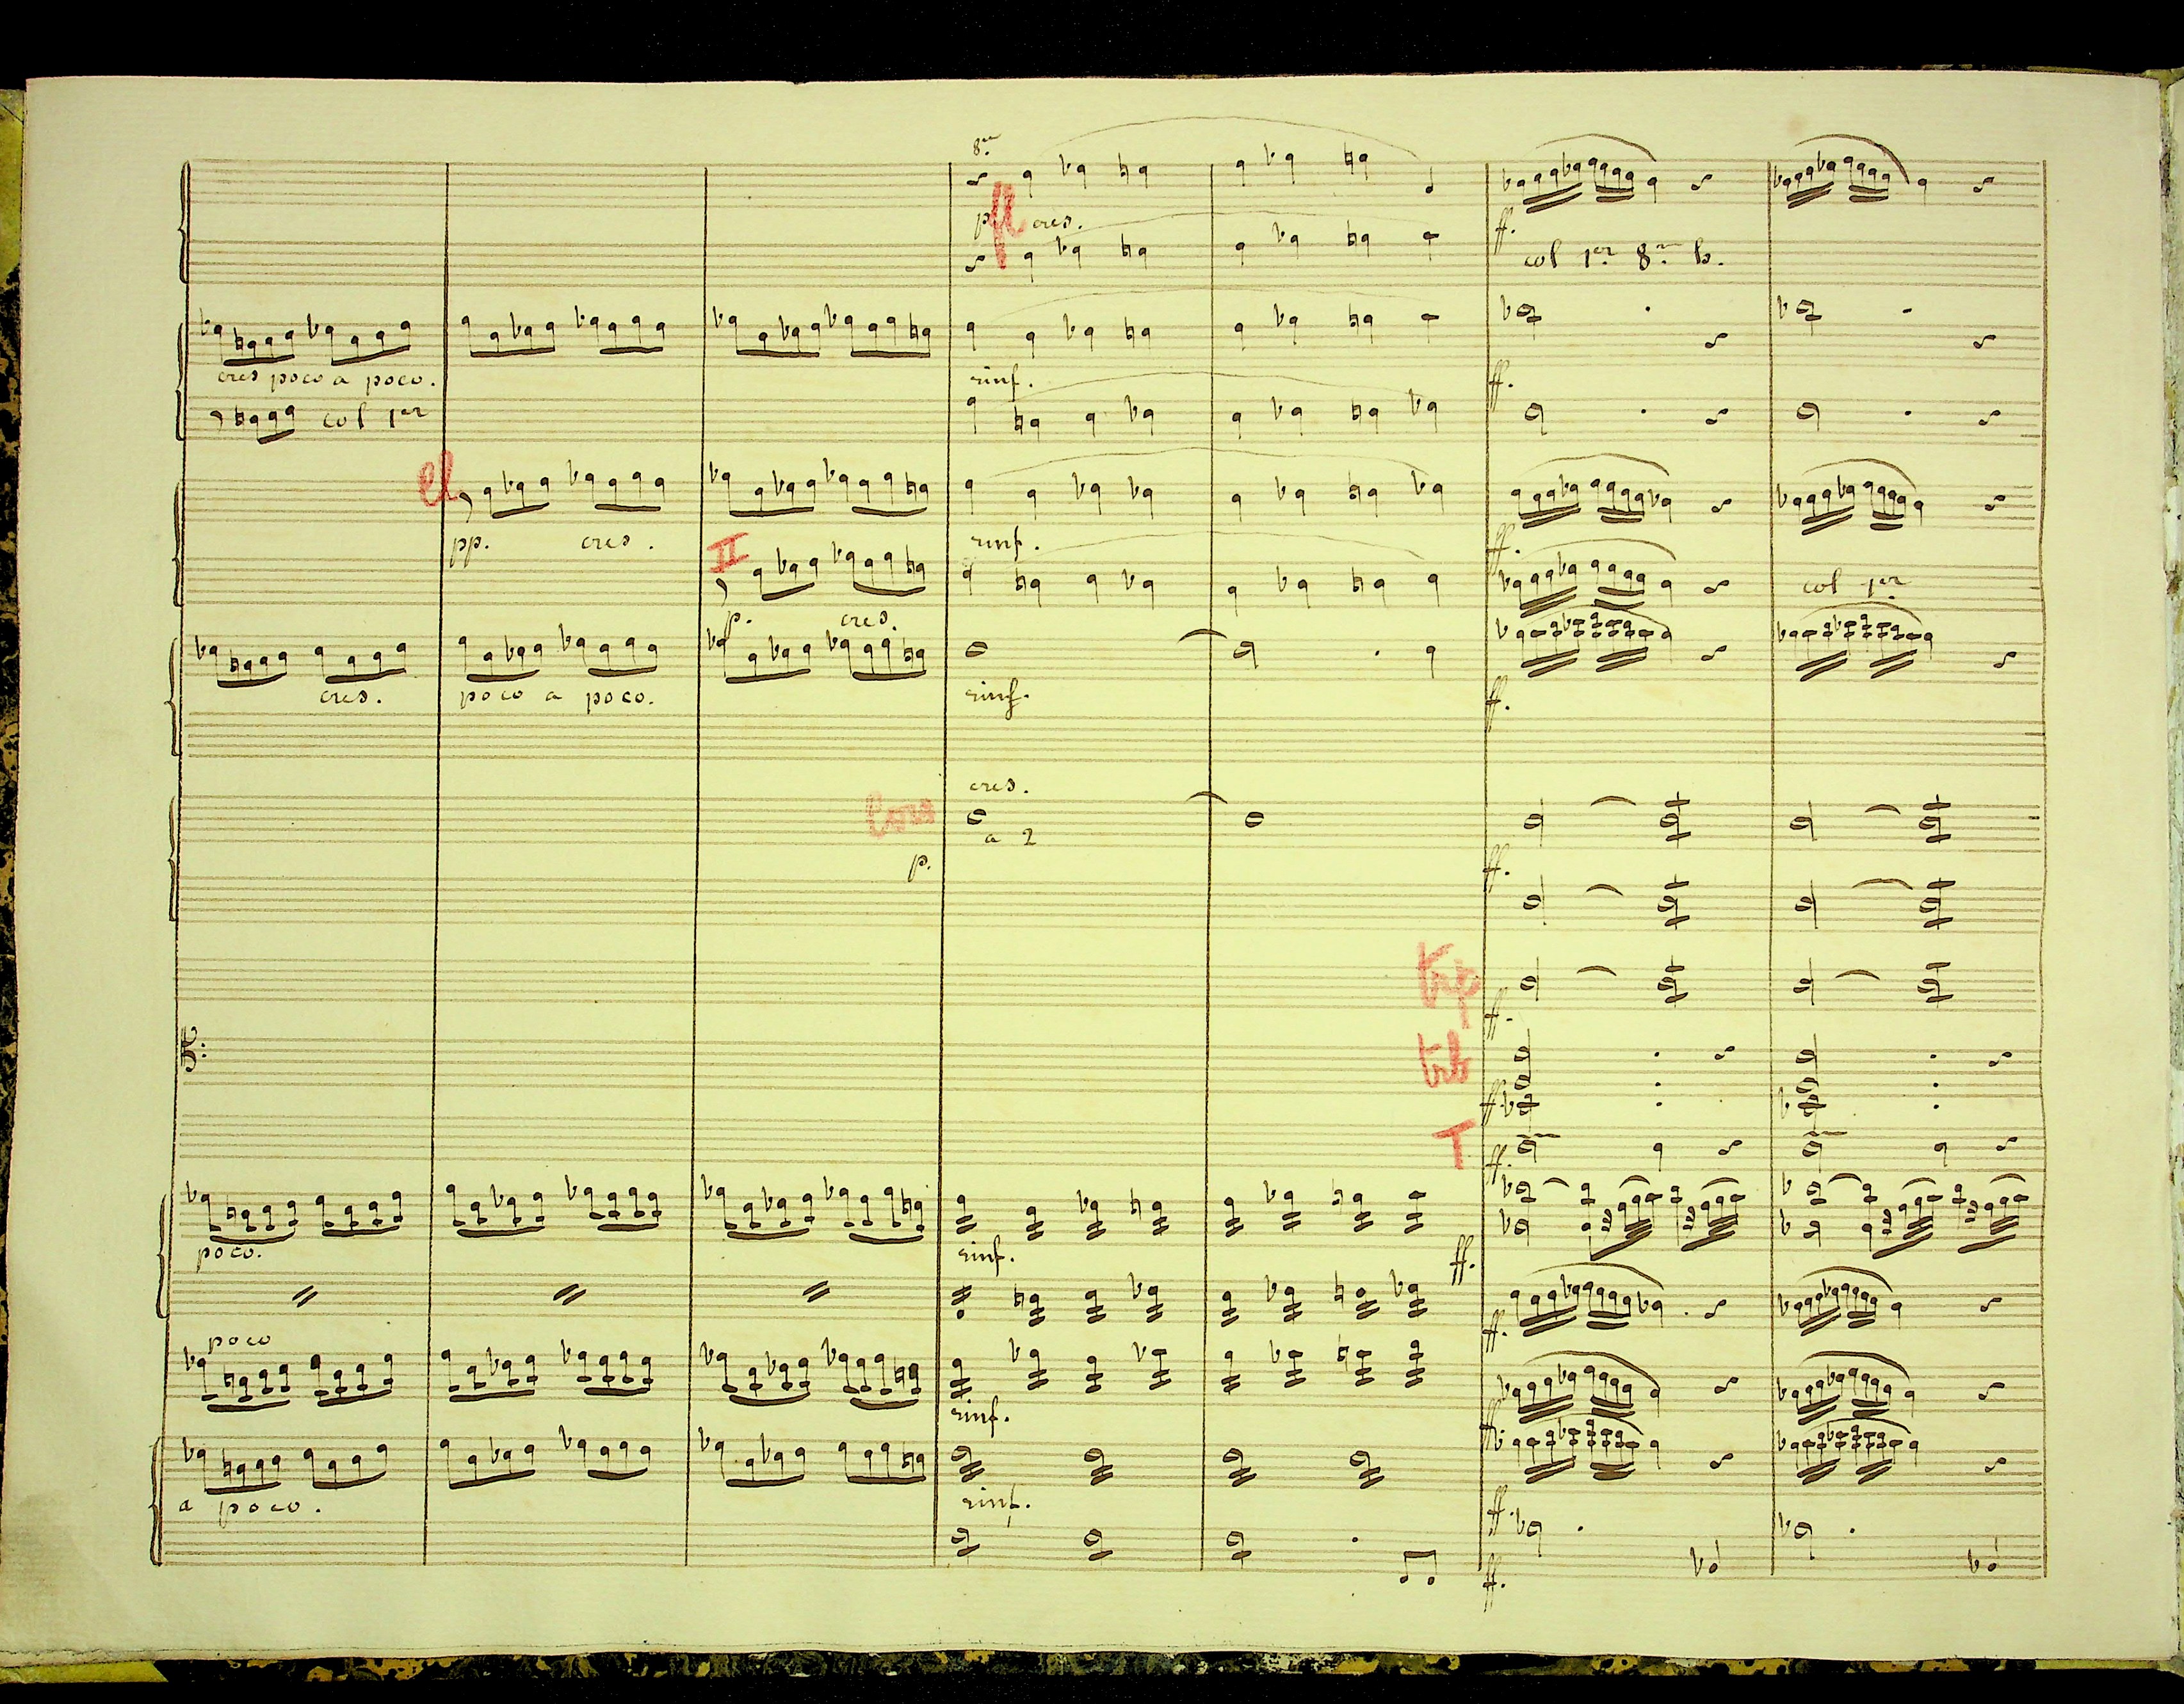 8va
p. fl cres.
ff.
col 1er 8va b.
cres poco a poco.
rinf.
ff.
col 1er
cl
pp. cres.
rinf.
ff.
II
p. cres.
col 1er
cres. poco a poco.
rinf.
ff.
cres.
Cors
a 2
p.
ff.
trp
ff.
trb
ff.
T
ff.
poco.
rinf.
ff.
ff.
poco
rinf.
ff.
a poco.
rinf.
ff.
ff.